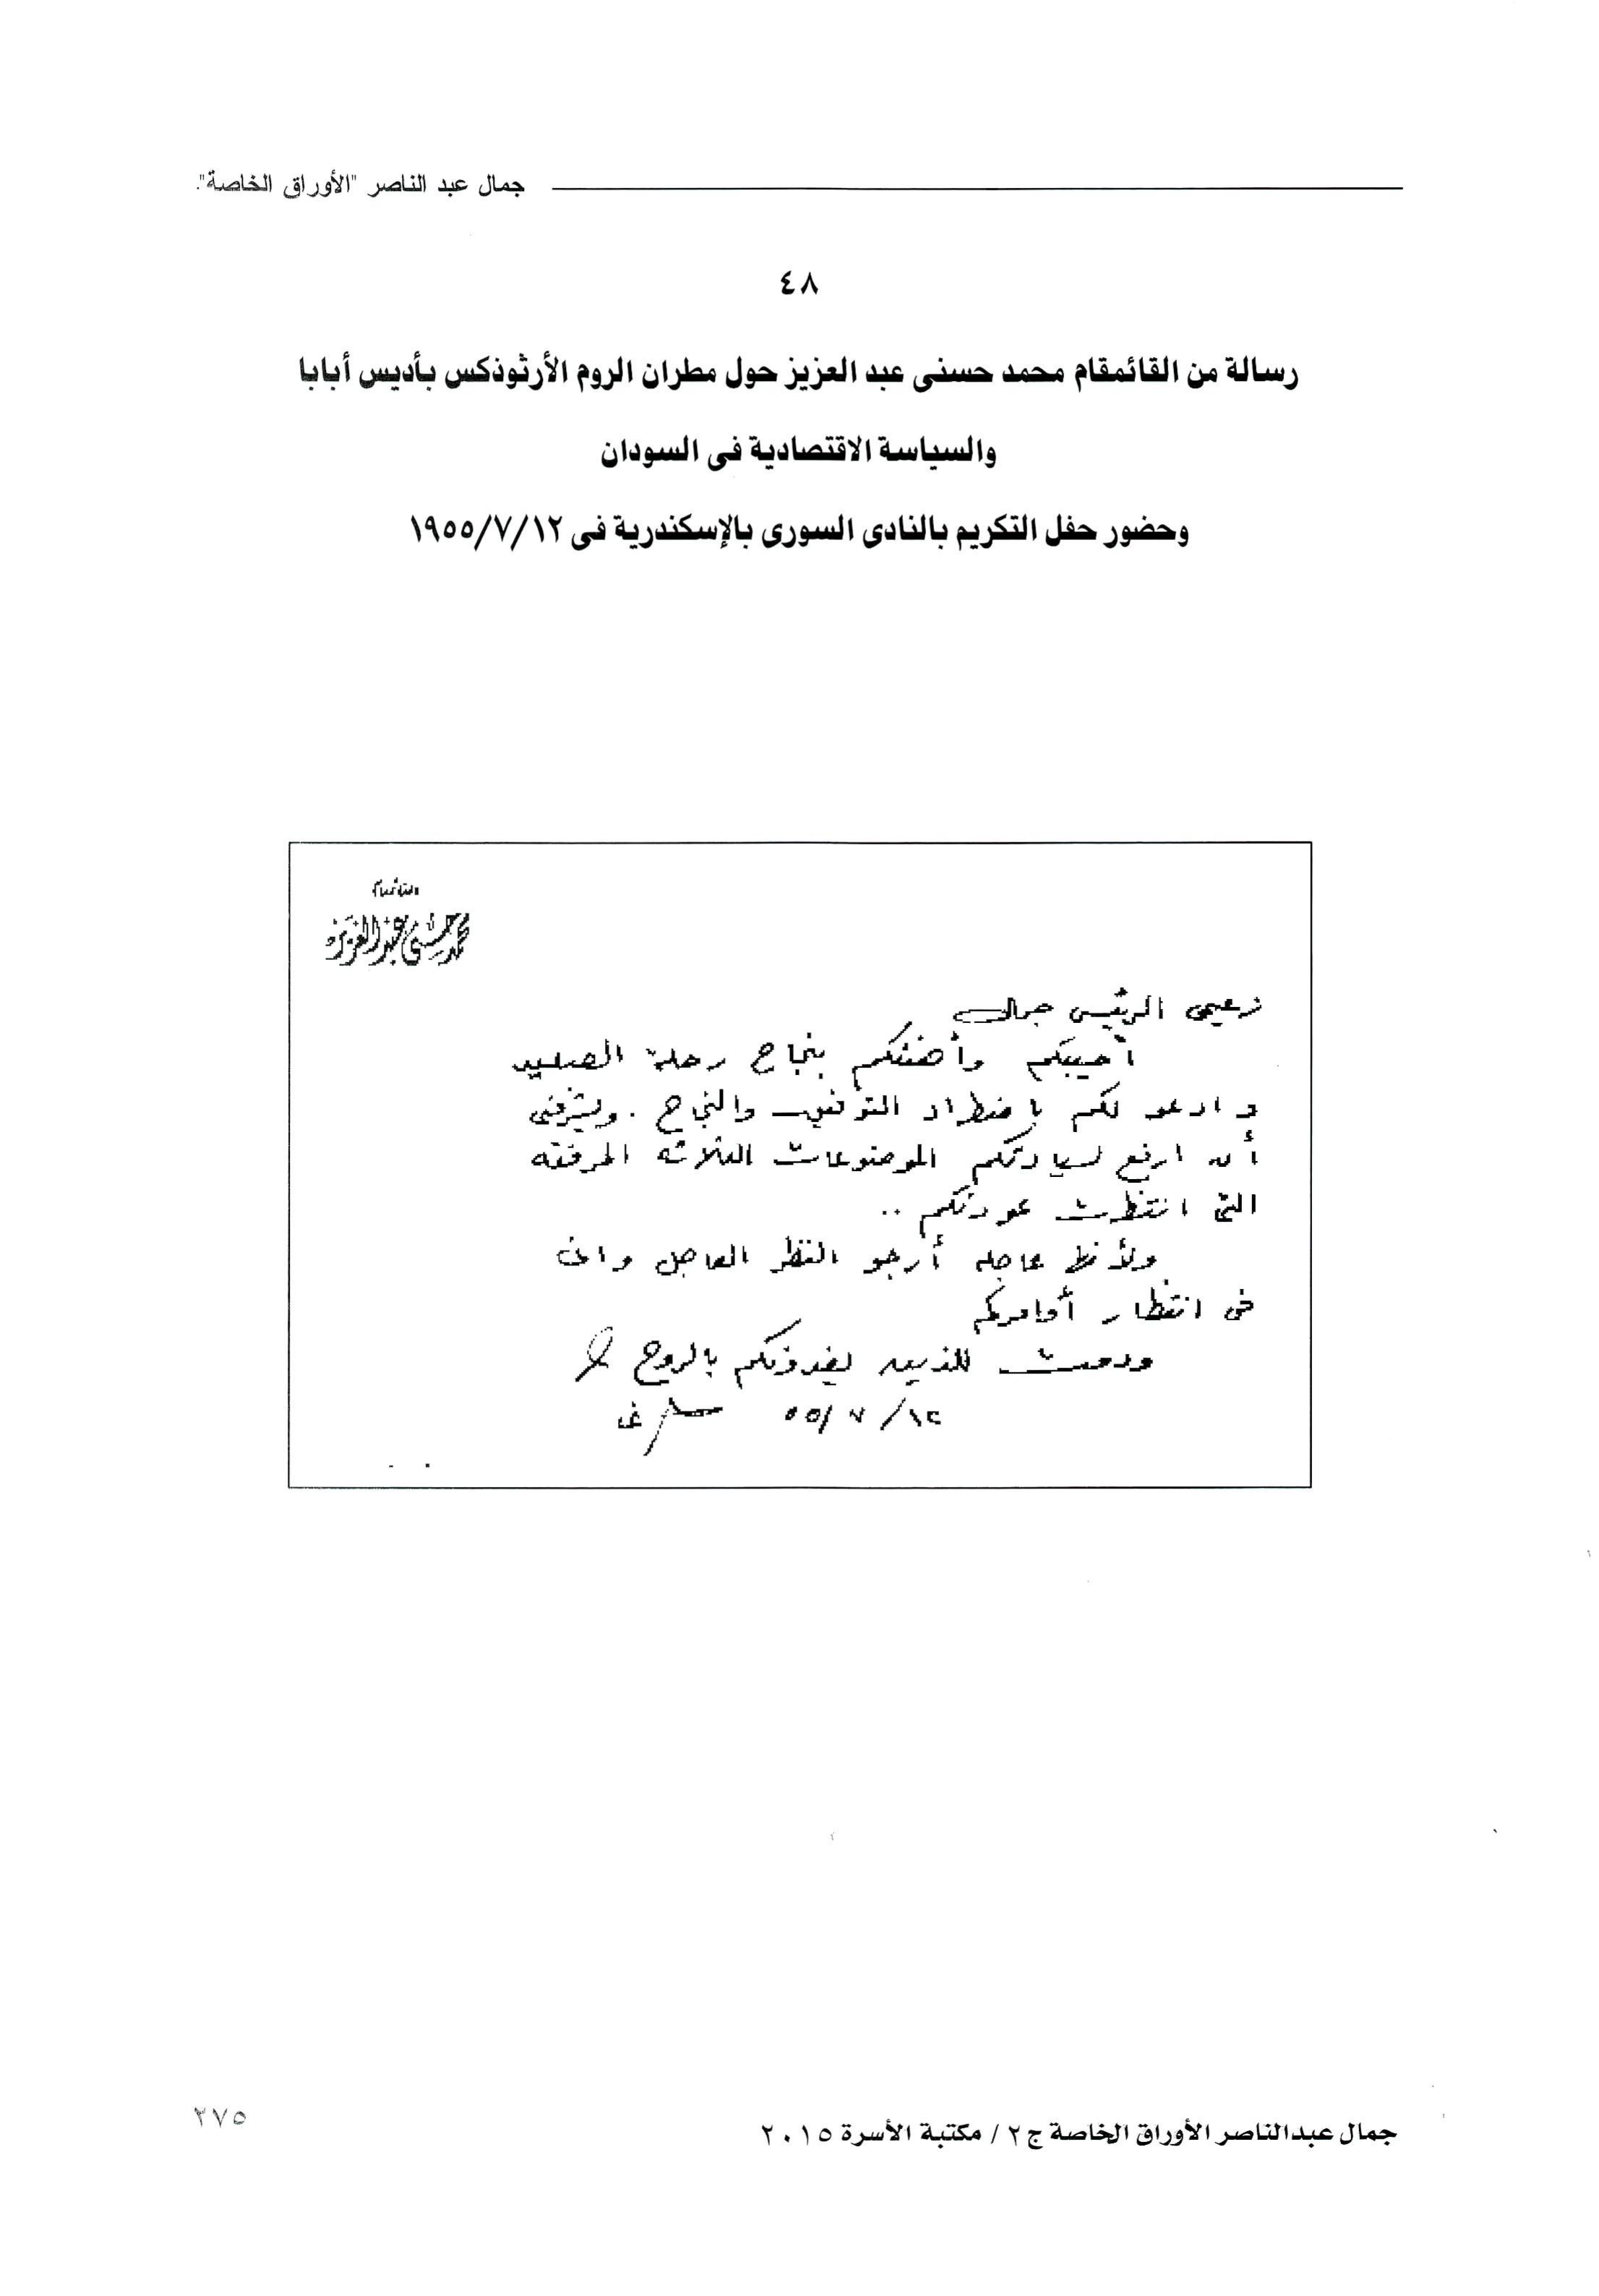 جمال عبد الناصر "الأوراق الخاصة".
٤٨
رسالة من القائمقام محمد حسنى عبد العزيز حول مطران الروم الأرثوذكس بأديس أبابا
والسياسة الاقتصادية فى السودان
وحضور حفل التكريم بالنادى السورى بالإسكندرية فى ١٩٥٥/٧/١٢
القائمقام
محمد حسنى عبد العزيز
زعيمى الرئيس جمال
أحييكم وأهنئكم بنجاح رحلة الصعيد
وادعو لكم باضطراد التوفيق والنجاح . ويشرفنى
أن ارفع لسيادتكم الموضوعات الثلاثه المرفقه
التى انتظرت عودتكم ..
ولأنها عاجله أرجو النظر العاجل وانى
فى انتظار أوامركم
ودمت للذين يفدونكم بالروح
١٢/٧/٥٥
جمال عبدالناصر الأوراق الخاصة ج ٢ / مكتبة الأسرة ٢٠١٥
٢٧٥